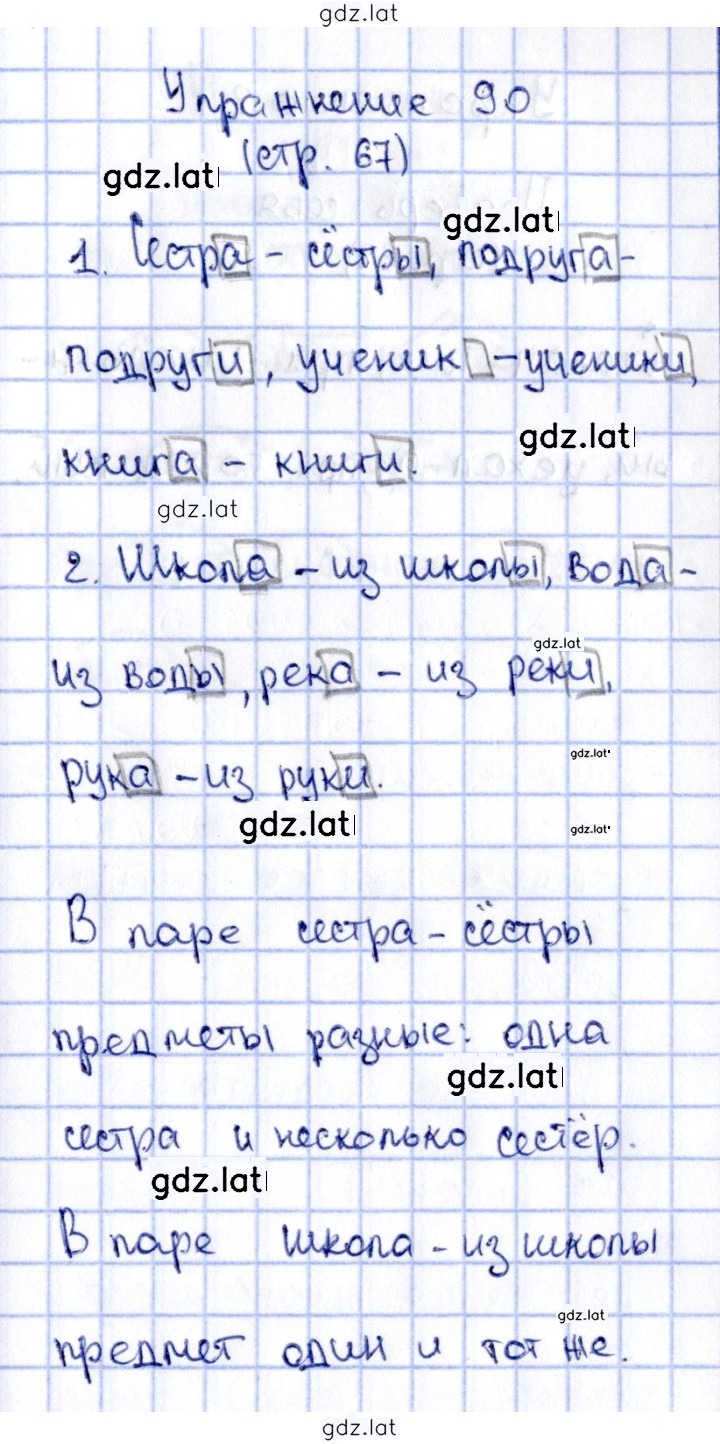 gdz.lat
Упражнение 90
(стр. 67)
gdz.lat
gdz.lat
1. Сестра - сёстры, подруга-
подруги, ученик -ученики,
gdz.lat
книга - книги.
gdz.lat
2. Школа - из школы, вода-
gdz.lat
из воды, река - из реки,
gdz.lat
рука - из руки.
gdz.lat
gdz.lat
В паре сестра - сёстры
предметы разные: одна
gdz.lat
сестра и несколько сестёр.
gdz.lat
В паре школа - из школы
gdz.lat
предмет один и тот же.
gdz.lat